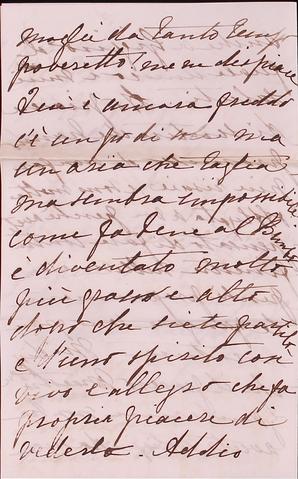 moglie da tanto tempo
poveretto! me ne dispiace
Qua è ancora freddo
c'è un po di sole ma
un aria che taglia
ma sembra impossibile
come fa bene al Bimbo
è diventato molto
più grasso e alto
dopo che siete partiti
e pieno spirito così
vivo e allegro che fa
proprio piacere di
vederlo. Addio